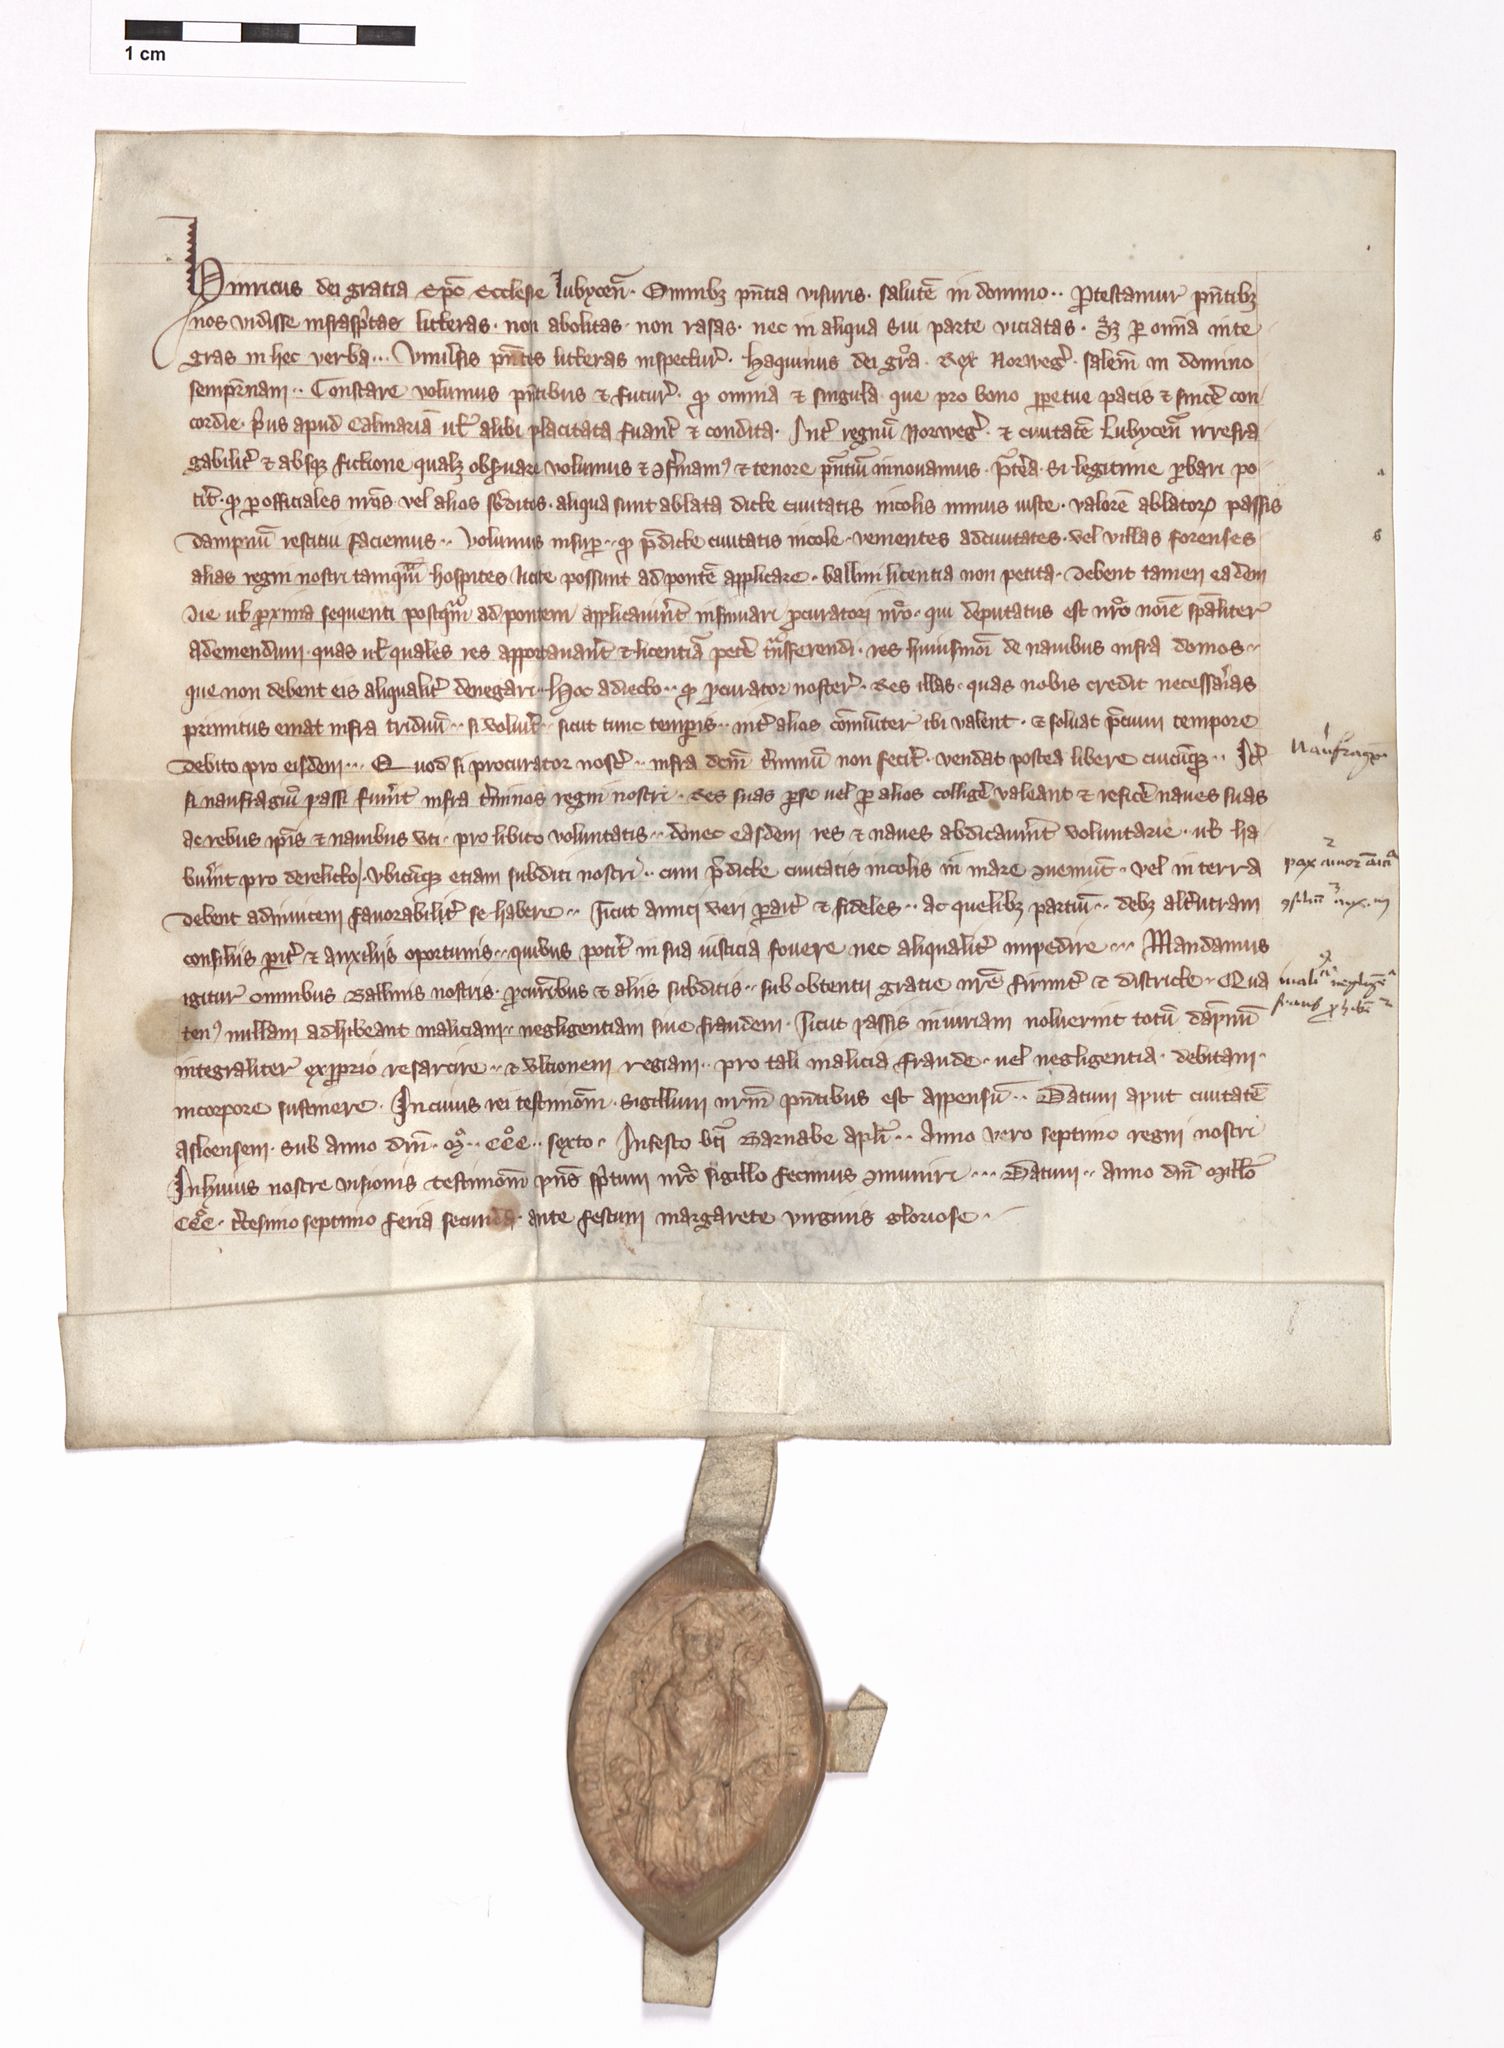 1 cm
Hinricus dei gratia Ep̄c Ecclesie lubycen̄. Omnibꝫ pn̄tia visuris. salutē in domino.. Ꝓtestamur pn̄tibꝫ
nos vidisse infrasp̄tas litteras. non abolitas. non rasas. nec in aliqua sui parte viciatas. Sꝫ ꝑ om̄ia inte
gras in hec verba... Vniu͛sis pn̄tes litteras inspectur͛. Haquinus dei gr̄a. Rex Norweg͛. salem̄ in domino
semp̄rnam.. Constare volumus pn̄tibus & futur͛. ꝙ omnia & singula que pro bono ꝑpetue pacis & sinc͛e con-
cordie. p͛us apud Calmariā ul͛ alibi placitata fuant͛ & condita. Int͛ regnū Norweg͛. & ciuitatē Lubycen̄ irrefra-
gabilit͛ & absqꝫ fictione qualꝫ obs͛uare volumus & ꝯf͛mamꝰ & tenore pn̄tiū innouamus. p͛t͛ea. Si legitime ꝓbari po-
tit͛. ꝙ ꝑ officiales nr̄os. vel alios sb͛ditos. aliqua sunt ablata dicte ciuitatis incolis minus iuste. valorē ablatoꝝ passis
dampnū restitui faciemus.. Volumus insuꝑ.. ꝙ p̄dicte ciuitatis incole. venientes ad ciuitates. vel villas forenses
alias regni nostri tamqm̄ hospites licite possunt ad pontē applicare. ballini licentia non petita. Debent tamen eadem
die ul͛ ꝓxima sequenti postqm̄ ad pontem applicauin͛t insinuari ꝓcuratori nr̄o. qui deputatus est nr̄o noīe spāliter
ad emendum. quas ul͛ quales res apportauan͛t & licentiā pet͛e tn̄sferendi. res huiusmōi de nauibus infra domos..
que non debent eis aliqualit͛ denegari.. Hoc adiecto.. ꝙ ꝓcurator noster͛. Res illas. quas nobis credit necessarias
primitus emat infra triduū.. si volu͛it.. sicut tunc temꝑis.. int͛ alios cōmuniter ibi valent. & soluat p̄cium tempore
debito pro eisdem... Quod si procurator nost͛.. infra dcm̄ t͛minū non fecit͛. vendat postea libere cuicūqꝫ.. It͛
si naufragiū passi fuin͛t infra t͛minos regni nostri. Res suas ꝑ se uel ꝑ alios collig͛e valeant & refic͛e naues suas
ac rebus ip̄is & nauibus vti. pro libito voluntatis.. donec easdem res & naues abdicauin͛t voluntarie. ul͛ ha-
bu͛int pro derelicto. Vbicūqꝫ etiam subditi nostri.. cum p̄dicte ciuitatis incolis in mare ꝯueniūt. vel in terra
debent adinuicem fauorabilit͛ se habere.. sicut amici veri parit͛ & fideles.. ac quelibꝫ partiū.. debꝫ alt͛utram
consiliis ꝑit͛ & auxiliis oportunis.. quibus potit͛ in sua iusticia fouere nec aliqualit͛ impedire.... Mandamus
igitur omnibus Ballinis nostris. ꝓcur̄ibus & aliis subditis.. sub obtentu gratie nr̄e firmit͛ & districte.. Qua
tenꝰ nullam adhibeant maliciam.. negligentiam siue fraudem. sicut passis iniuriam noluerint totū dāpnū
integraliter ex ꝓprio resarcire.. & vltionem regiam.. pro tali malicia fraude. uel negligentia. debitam.
in corpore sustinere. In cuius rei testimōm. Sigillum nr̄m pn̄tibus est appensū.. Datum aput ciuitatē
asloensem. Sub anno dn̄i. m̊.. ccc̊.. sexto.. In festo bt̄i Barnabe apl̄i.. Anno vero septimo regni nostri
In huius nostre visionis testimōm pn̄s sp̄tum nr̄o sigillo fecimus ꝯmuniri.... Datum.. anno dn̄i Mill̄o
ccc̊. t͛cesimo septimo feria secunda. ante festum margarete virginis gloriose..
Naufragiū
pax amor amici
ꝯsiliū aux.
mali negligē
fraus ꝓhib